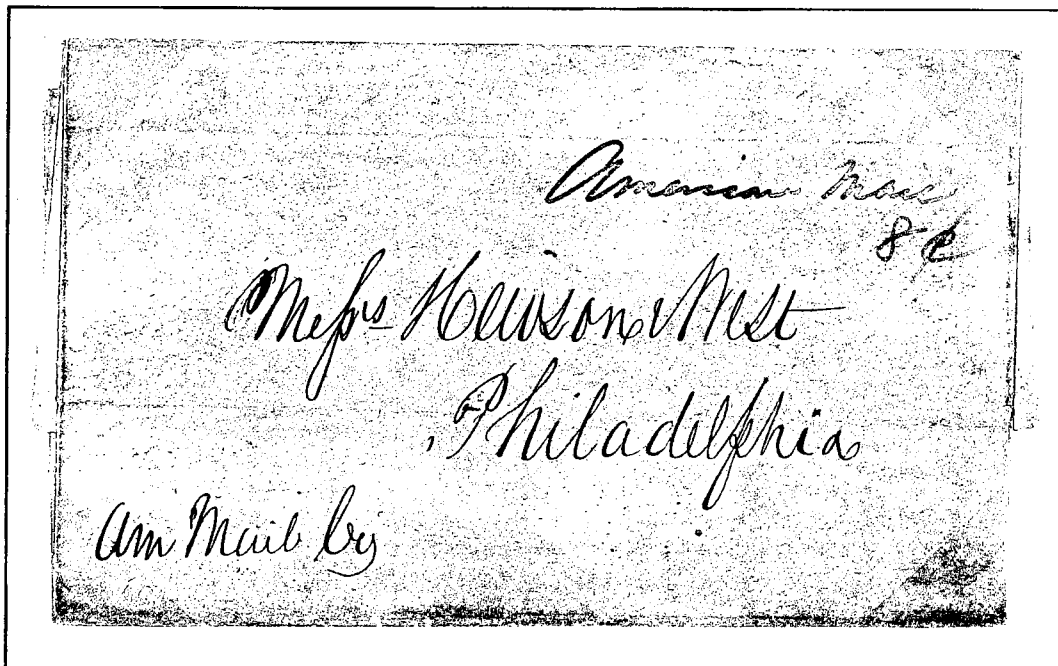 American Mail
8 ¢
Messrs Hewson & West
Philadelphia
Am Mail Co